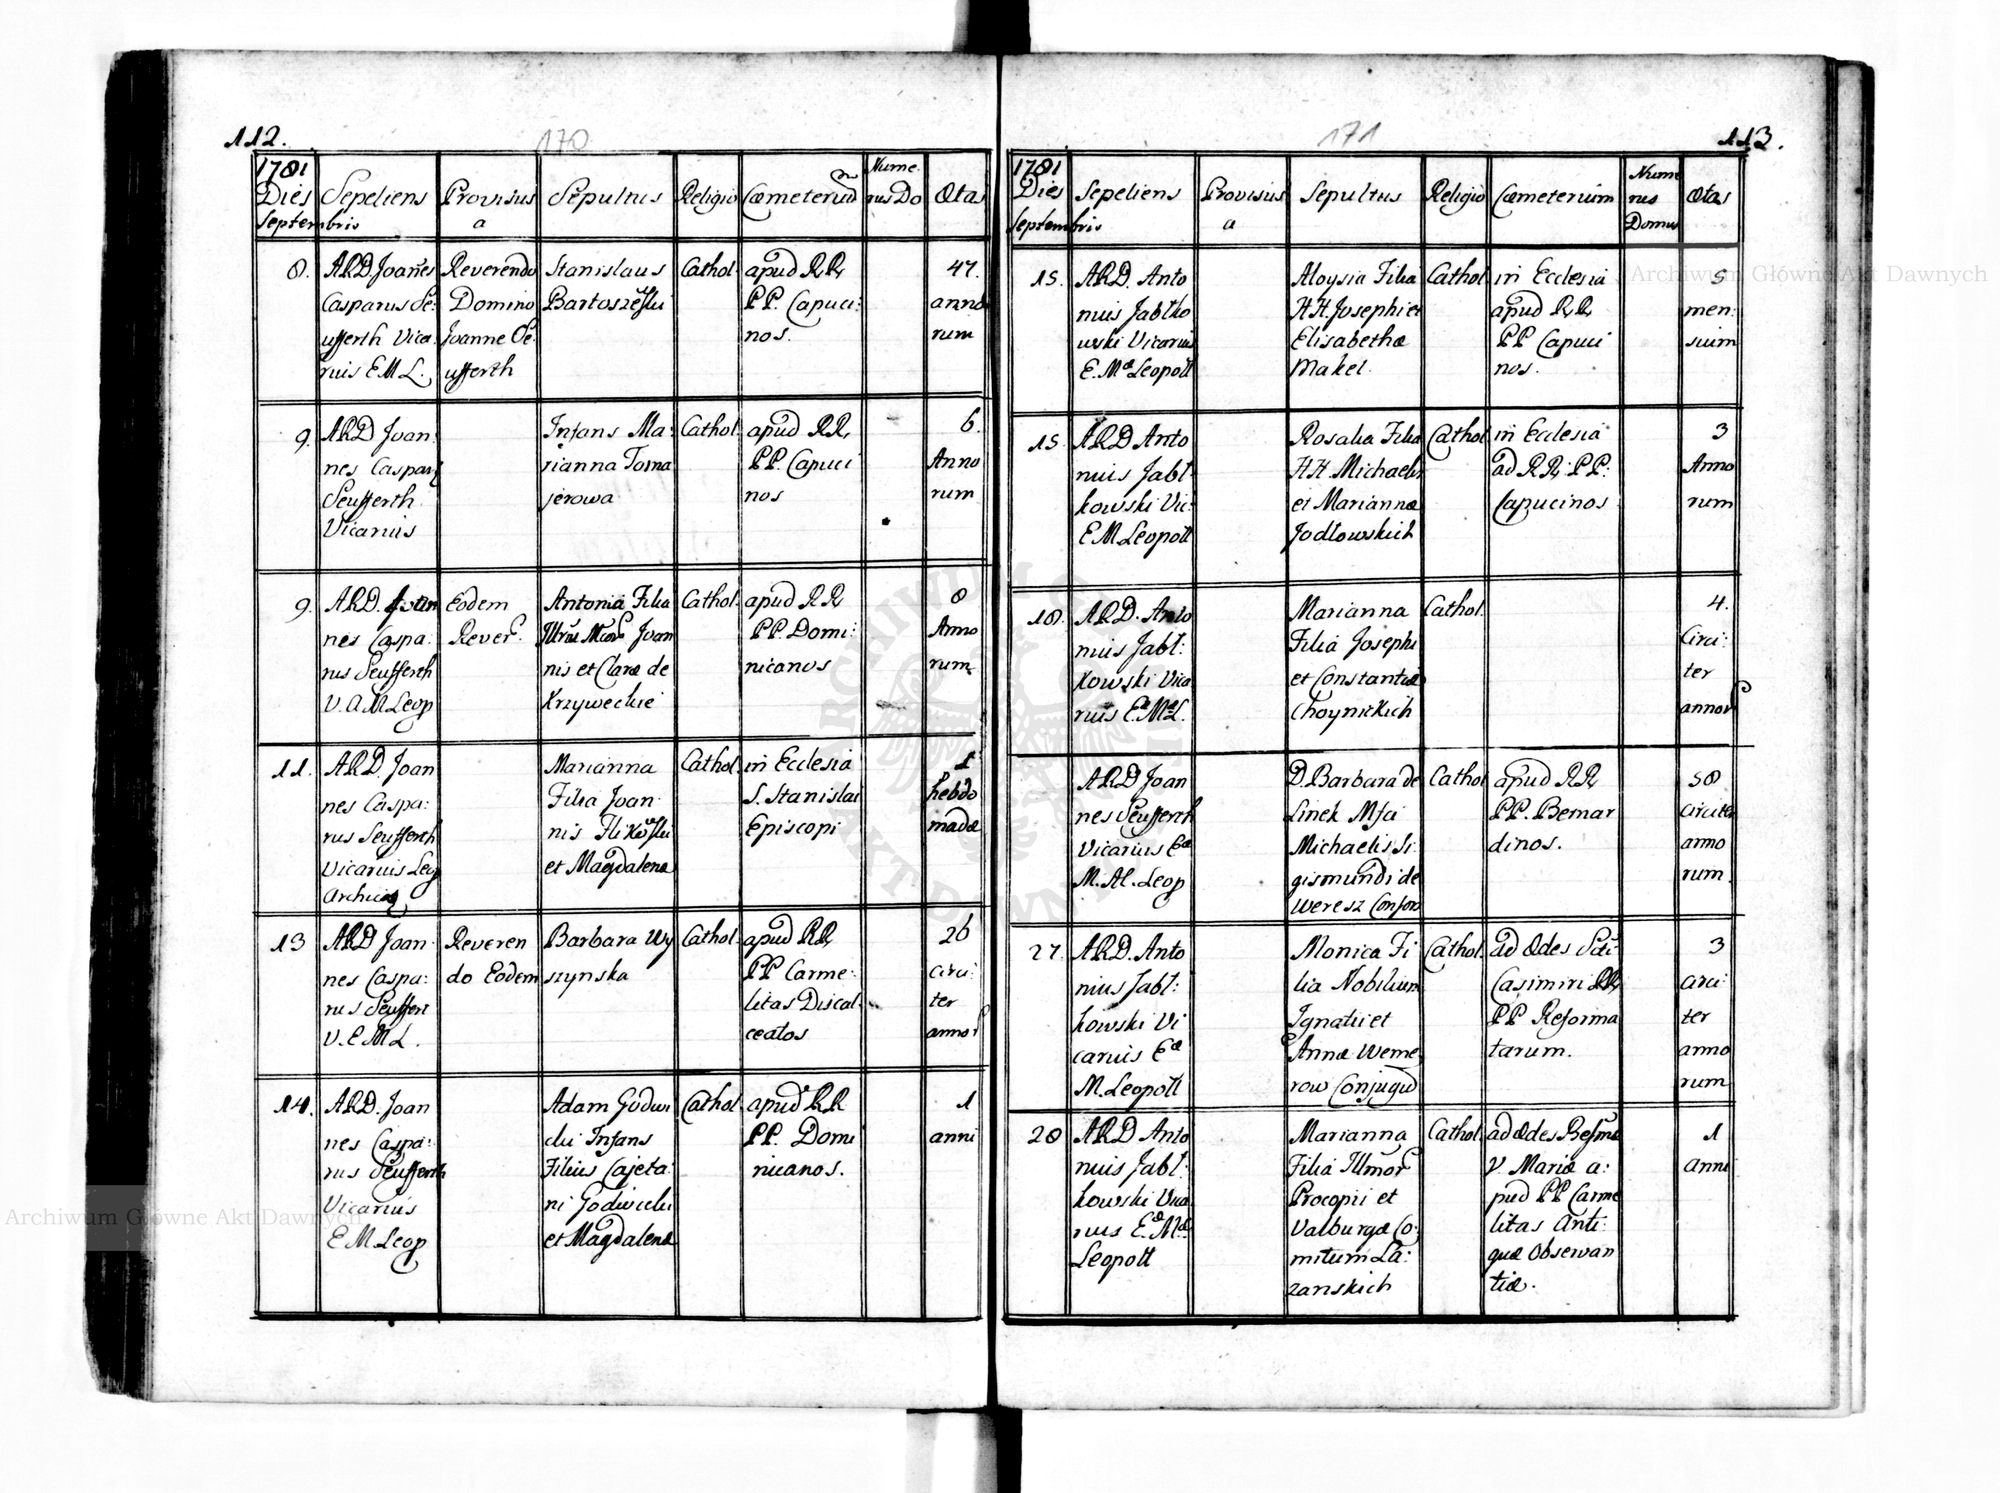 112.
170
1781
Dies
Septembris
Sepeliens
Provisus
a
Sepultus
Religio
Cœmeterium
Nume
rus Do
Ætas
8.
ARD. Joannes
Casparus Se
ufferth Vica
rius E M L.
Reverendo
Domino
Joanne Se
ufferth
Stanislaus
Bartoszewski
Cathol.
apud RR
PP. Capuci:
nos.
47.
anno
rum
9.
ARD Joan:
nes Caspar
Seufferth
Vicarius
Infans Ma:
rianna Torna
jerowa
Cathol.
apud RR
PP. Capuci
nos
6.
Anno
rum
9.
ARD. Joan
nes Caspa:
rus Seufferth
V. A. M Leop
Eodem
Rever
Antonia Filia
Joan
nis et Claræ de
Krzyweckie
Cathol.
apud RR
PP. Domi:
nicanos
8
Anno
rum
11.
ARD. Joan
nes Caspa:
rus Seufferth
Vicarius Leop
Marianna
Filia Joan:
nis
et Magdalenæ
Cathol.
in Ecclesia
S. Stanislai
Episcopi
1
hebdo
madæ
13
ARD Joan:
nes Caspa:
rus Seuffert
V. E M L.
Reveren
do Eodem
Barbara Wy
szynska
Cathol.
apud RR
PP Carme:
litas Discal
ceatos
26
circi:
ter
annor
14.
ARD. Joan
nes Caspa:
rus Seufferth
Vicarius
E M Leop
Adam Godwi
cki Infans
Filius Cajeta:
ni Godwicki
et Magdalenæ
Cathol
apud RR
PP. Domi
nicanos.
1
anni
113.
171
1781
Dies
Septembris
Sepeliens
Provisus
a
Sepultus
Religio
Cœmeterium
Nume
rus
Domus
Ætas
15.
ARD. Anto
nius Jabłko
wski Vicarius
E. M Leopolt
Aloysia Filia
HH Josephi et
Elisabethæ
Makel
Cathol
in Ecclesia
apud RR
PP Capuci
nos.
5
men:
sium
15.
ARD Anto
nius Jabł:
kowski Vic:
E M Leopolt
Rosalia Filia
HH Michaelis
et Mariannæ
Jodłowskich
Cathol
in Ecclesia
ad RR: PP:
Capucinos
3
Anno
rum
18.
ARD. Anto
nius Jabł:
kowski Vica
rius E. M L.
Marianna
Filia Josephi
et Constantiæ
Choynickich
Cathol.
4.
Circi:
ter
annor
ARD Joan
nes Seufferth
Vicarius E
M. Al. Leop
D. Barbara de
Linek
Michaelis Si:
gismundi de
Weresz Consors
Cathol
apud RR
PP. Bernar
dinos.
58
circiter
anno
rum.
27.
ARD. Anto
nius Jabł:
kowski Vi
carius E
M. Leopolt
Monica Fi
lia Nobilium
Ignatii et
Annæ Weme
row Conjugum
Cathol.
ad Ædes Sti
Casimiri RR
PP Reforma
tarum.
3
circi:
ter
anno
rum
28
ARD Anto
nius Jabł:
kowski Vica
rius E. M.
Leopolt
Marianna
Filia Illmor
Procopii et
Valburgæ Co:
mitum La:
zanskich
Cathol.
ad Ædes
V. Mariæ a:
pud PP Carme
litas Anti:
quæ Observan
tiæ.
1
Anni
ARCHIWUM GŁÓWNE
AKT DAWNYCH
Archiwum Główne Akt Dawnych
Archiwum Główne Akt Dawnych